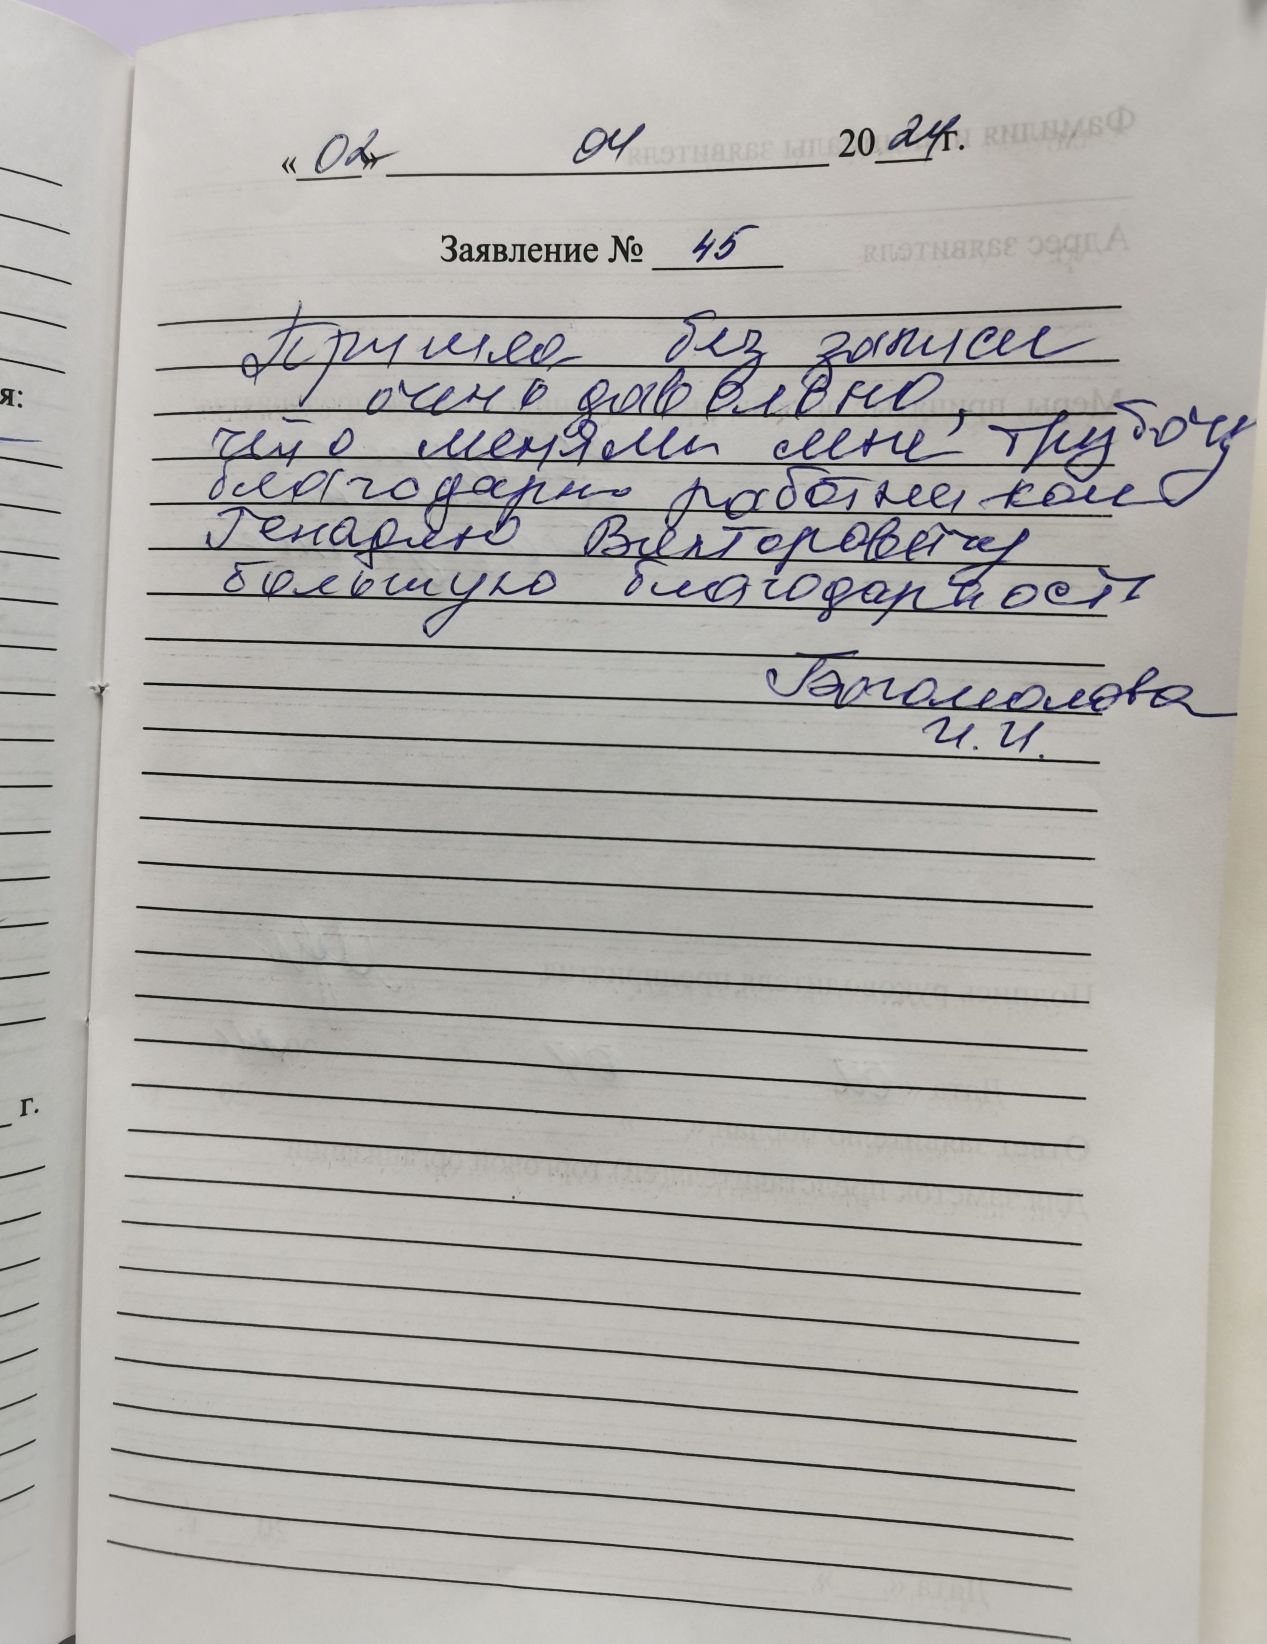 «02» 04 2024 г.
Заявление № 45
Пришла без записи
очень давольно,
что меняли мне трубочку
благодарю работникам
Генадию Викторовичу
большую благодарность
Богомолова
И. И.
я:
г.